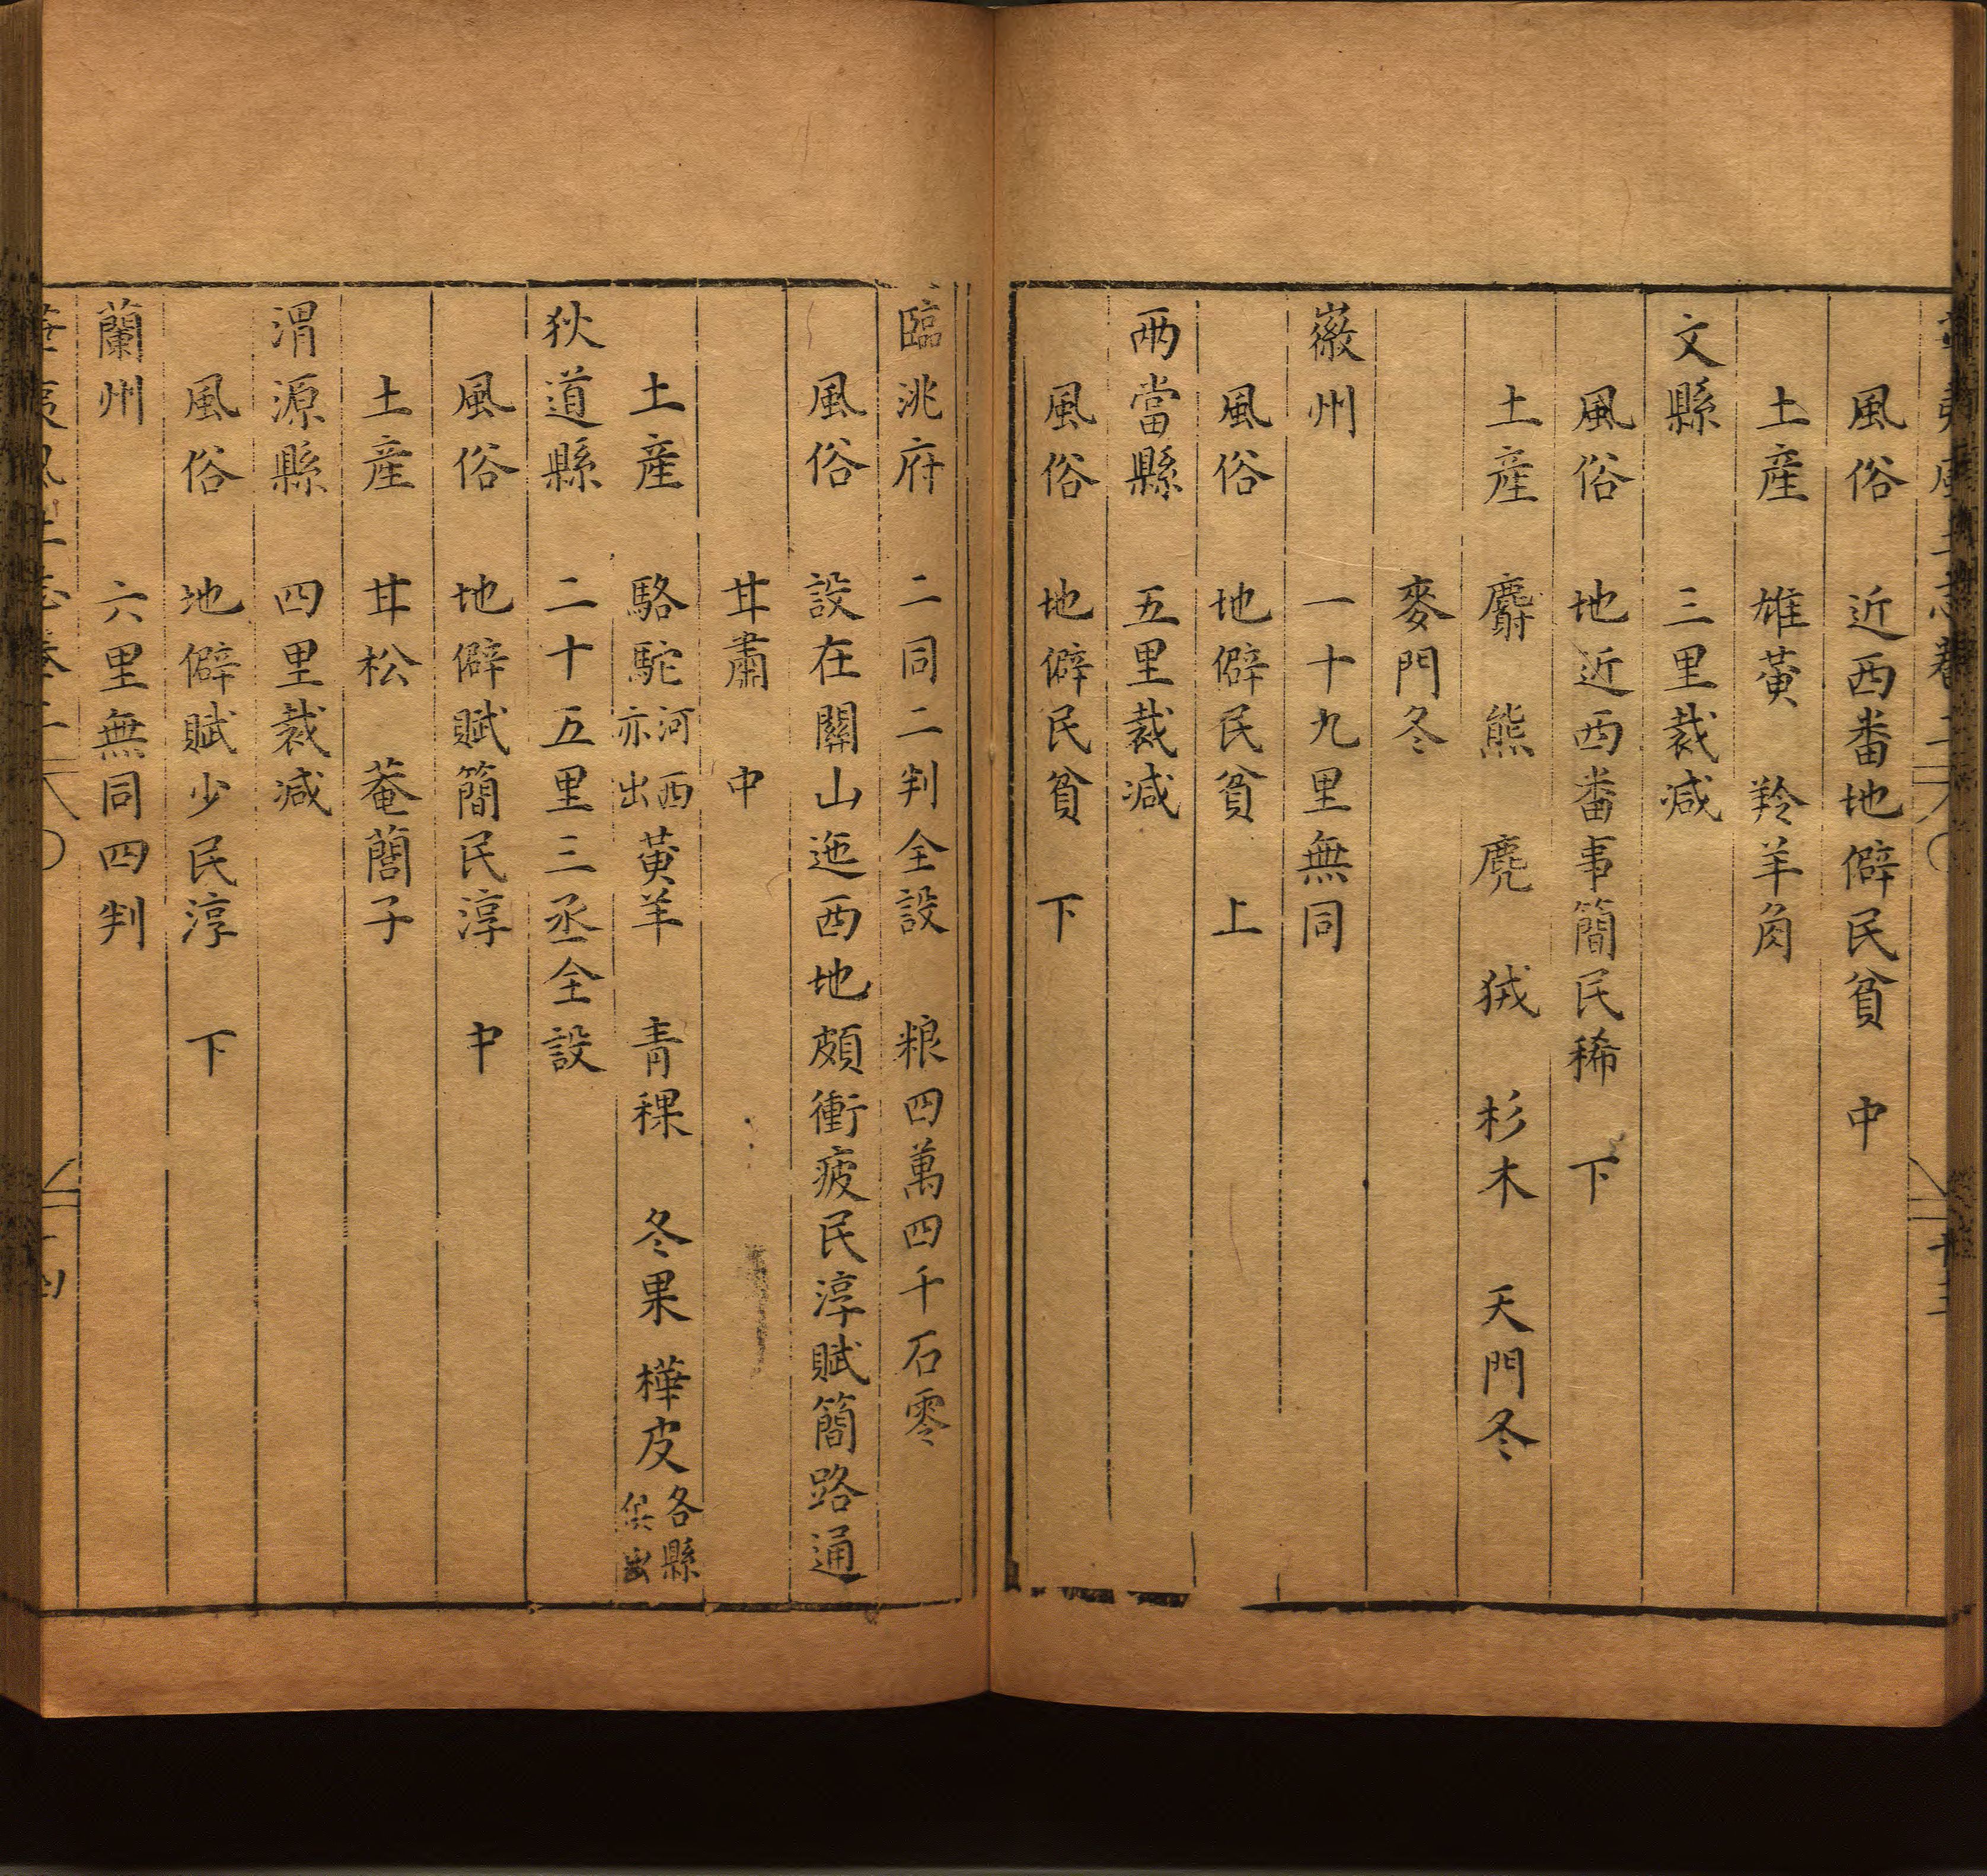 風俗 近西番地僻民貧 中
土產 雄黃 羚羊角
文縣 三里裁减
風俗 地近西番事簡民稀 下
土產 麝 熊 麂 狨 杉木 天門冬
麥門冬
徽州 一十九里無同
風俗 地僻民貧 上
兩當縣 五里裁减
風俗 地僻民貧 下
臨洮府 二同二判全設 粮四萬四千石零
風俗 設在關山迤西地頗衝疲民淳賦簡路通
甘肅 中
土產 駱駝河西亦出黃羊 青稞 冬果 樺皮各縣俱出
狄道縣 二十五里三丞全設
風俗 地僻賦簡民淳 中
土產 甘松 菴䕡子
渭源縣 四里裁减
風俗 地僻賦少民淳 下
蘭州 六里無同四判